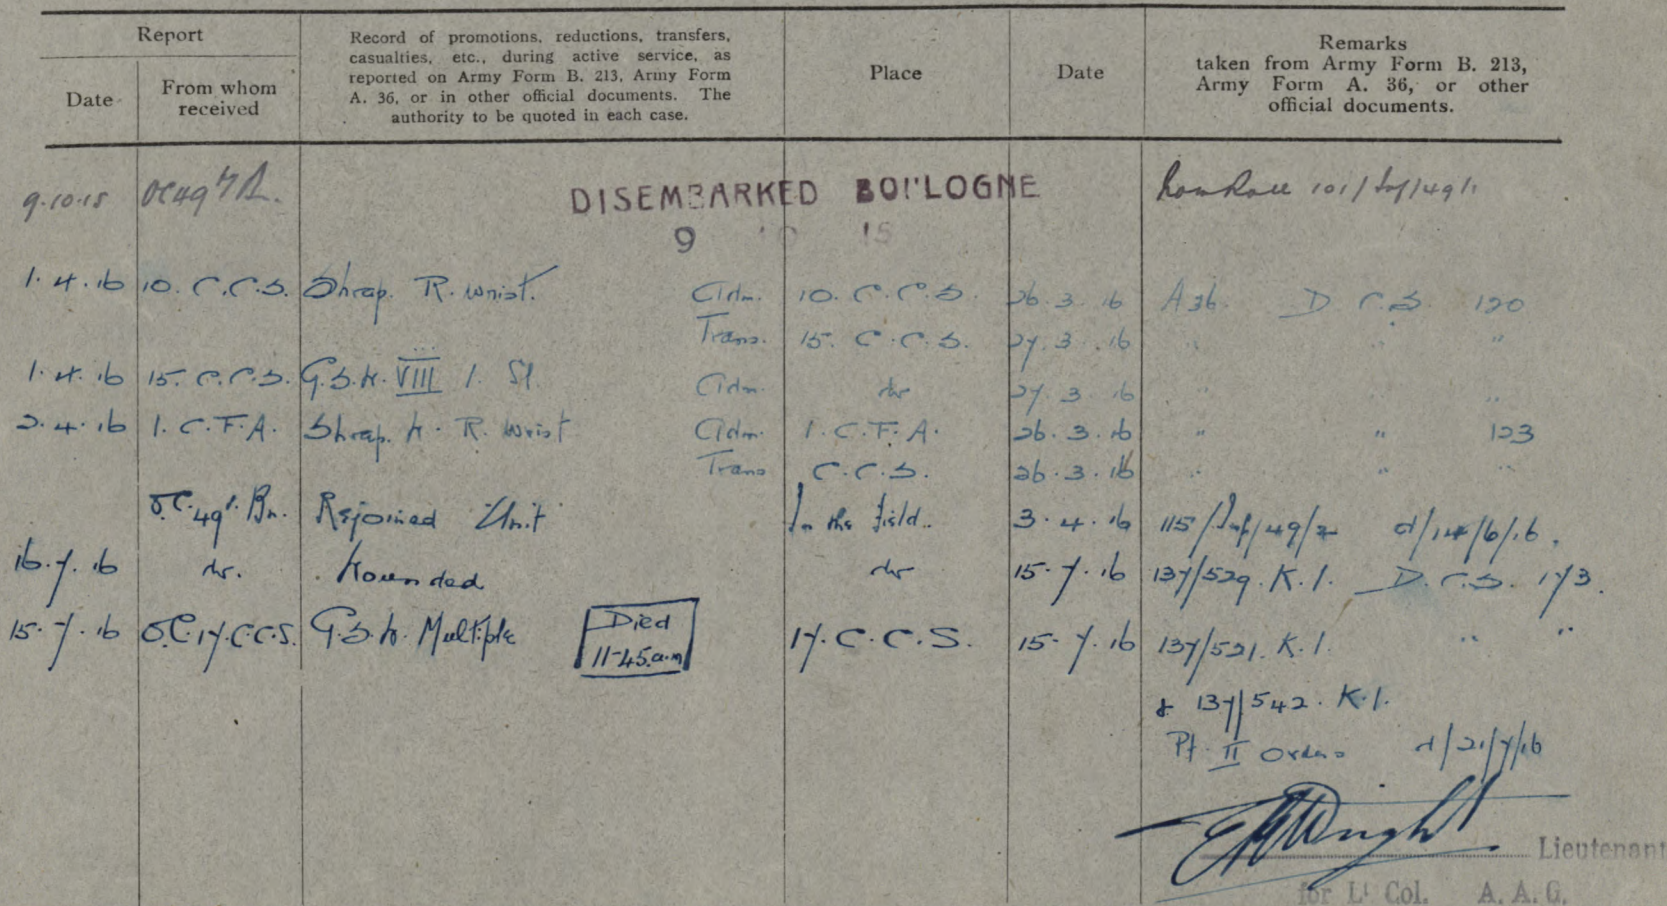 Report
Record of promotions, reductions, transfers, casualties, etc., during active service, as reported on Army Form B. 213, Army Form A. 36, or in other official documents. The authority to be quoted in each case.
Place
Date
Remarks taken from Army Form B. 213, Army Form A. 36, or other official documents.
Date
From whom received
9.10.15 OC 49 Bn. DISEMBARKED BOULOGNE 101/Inf/49/1
9 10 15
1.4.16 10. C.C.S. Shrap. R. wrist. Adm. 10. C.C.S. 26.3.16 A36. D C.S. 120
Trans. 15. C.C.S. 27.3.16 " " "
1.4.16 15. C.C.S. G.S.W. VIII 1. Sl. Adm. do 27.3.16 "
2.4.16 1. C.F.A. Shrap. W. R. Wrist Adm. 1. C.F.A. 26.3.16 " " 123
Trans C.C.S. 26.3.16 " " "
O.C. 49th Bn. Rejoined Unit In the Field. 3.4.16 115/Inf/49/2 d/14/6/16.
16.7.16 do. Wounded do 15.7.16 137/529. K.1. D.C.S. 173.
15.7.16 O.C. 17 C.C.S. G.S.W. Multiple Died 17. C.C.S. 15.7.16 137/521. K.1. " "
11-45 a.m
& 137/542. K.1.
Pt. II Orders d/21/7/16
Wright
Lieutenant
for Lt Col. A. A. G.